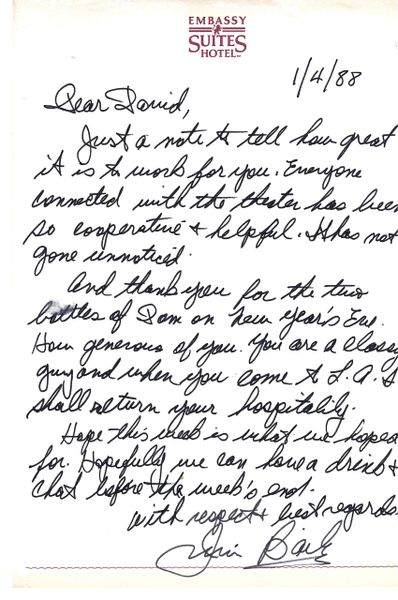 EMBASSY
SUITES
HOTEL
1/4/88
Dear David,
Just a note to tell how great
it is to work for you. Everyone
connected with the theater has been
so cooperative + helpful. It has not
gone unnoticed.
And thank you for the two
bottles of Dom on New Year's Eve.
How generous of you. You are a classy
guy and when you come to L.A. I
shall return your hospitality.
Hope this week is what we hoped
for. Hopefully we can have a drink +
chat before the week's end.
With respect + best regards
Jim Bailey